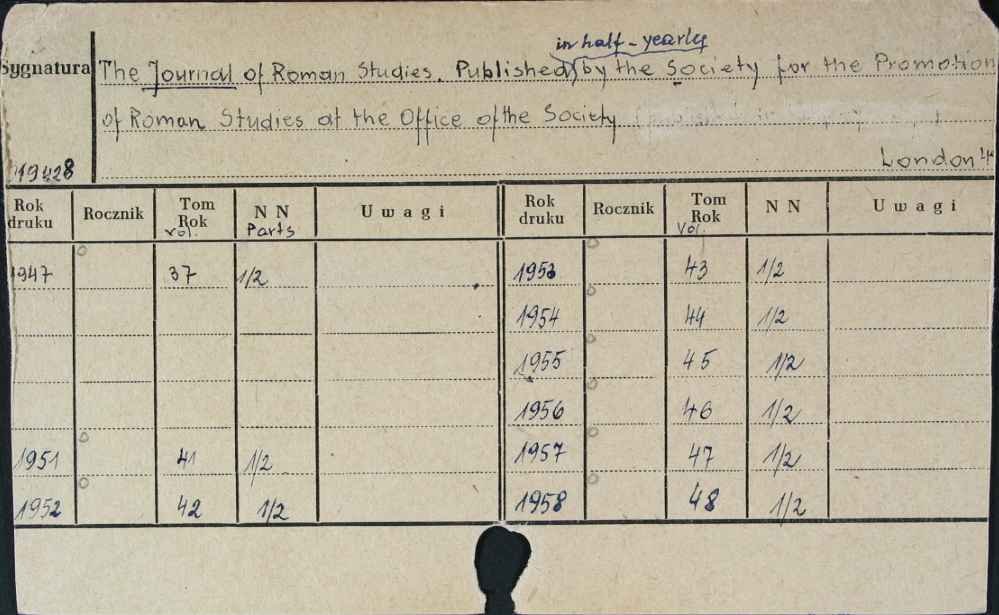 in half-yearly
Sygnatura The Journal of Roman Studies. Published by the Society for the Promotion
of Roman Studies at the Office of the Society
London
19428
Rok druku Rocznik Tom Rok vol. N N Parts Uwagi Rok druku Rocznik Tom Rok Vol. N N Uwagi
1947 37 1/2 1953 43 1/2
1954 44 1/2
1955 45 1/2
1956 46 1/2
1951 41 1/2 1957 47 1/2
1952 42 1/2 1958 48 1/2